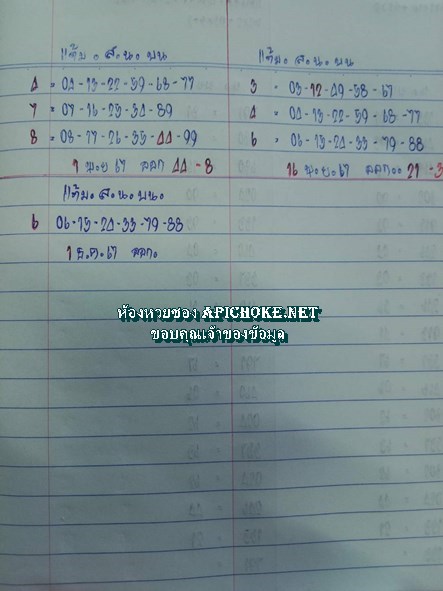 แต้ม . ส . น . บน
4 = 04-13-22-59-68-77
7 = 07-16-25-34-89
8 = 08-17-26-35-44-99
1 พ.ย 67 ออก 44-8
แต้ม . ส . น . บน
3 = 03-12-49-58-67
4 = 04-13-22-59-68-77
6 = 06-15-24-33-79-88
16 พ.ย. 67 ออก. 21-3
แต้ม . ส . น . บน .
6 06-15-24-33-79-88
1 ธ.ค. 67 ออก.
ห้องหวยซอง APICHOKE.NET
ขอบคุณเจ้าของข้อมูล